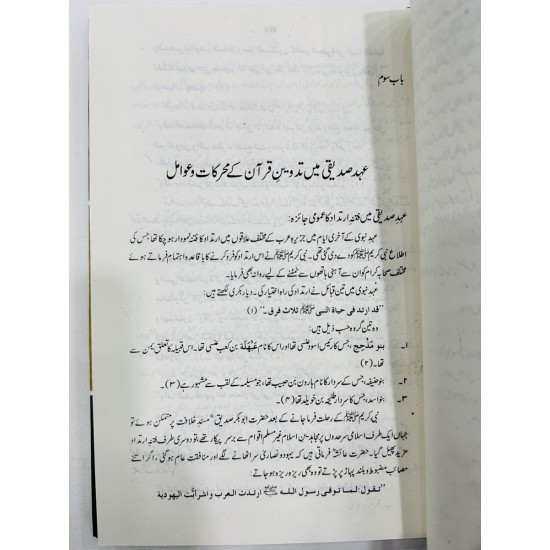 باب سوم
عہد صدیقی میں تدوینِ قرآن کے محرکات و عوامل
عہد صدیقی میں فتنہ ارتداد کا عمومی جائزہ:
عہد نبوی کے آخری ایام میں جزیرہ عرب کے مختلف علاقوں میں ارتداد کا فتنہ نمودار ہو چکا تھا جس کی
اطلاع نبی کریم ﷺ کو دے دی گئی تھی۔ نبی کریم ﷺ نے اس ارتداد کو فرو کرنے کا باقاعدہ اہتمام فرماتے ہوئے
مختلف صحابہ کرام کو ان سے آہنی ہاتھوں سے نمٹنے کے لیے روانہ بھی فرمایا۔
عہد نبوی میں تین قبائل نے ارتداد کی راہ اختیار کی۔ دیار بکری لکھتے ہیں:
”قد ارتد فی حیاة النبی ﷺ ثلاث فرق۔“ (۱)
وہ تین گروہ حسب ذیل ہیں:
۱۔ بنو مذحج، جس کا رئیس اسود عنسی تھا اور اس کا نام عَبْهَلَة بن کعب عنسی تھا۔ اس قبیلہ کا تعلق یمن سے
تھا۔ (۲)
۲۔ بنو حنیفہ، جس کے سردار کا نام ہارون بن حبیب تھا، جو مسیلمہ کے لقب سے مشہور ہے (۳)۔
۳۔ بنو اسد، جس کا سردار طلیحہ بن خویلد تھا (۴)۔
نبی کریم ﷺ کے رحلت فرما جانے کے بعد حضرت ابوبکر صدیقؓ مسند خلافت پر متمکن ہوئے تو
جہاں ایک طرف اسلامی سرحدوں پر مجاہدین اسلام غیر مسلم اقوام سے برسرِ پیکار تھے، تو دوسری طرف فتنہ ارتداد
مزید پھیل گیا۔ حضرت عائشہؓ فرماتی ہیں کہ یہود و نصاریٰ سر اٹھانے لگے اور منافقت عام ہو گئی، اگر اتنے
مصائب مضبوط و بلند پہاڑ پر پڑتے تو وہ بھی ریزہ ریزہ ہو جاتے:
”تقول لما توفی رسول اللہ ﷺ ارتدت العرب و اشرأبّت الیهودیة